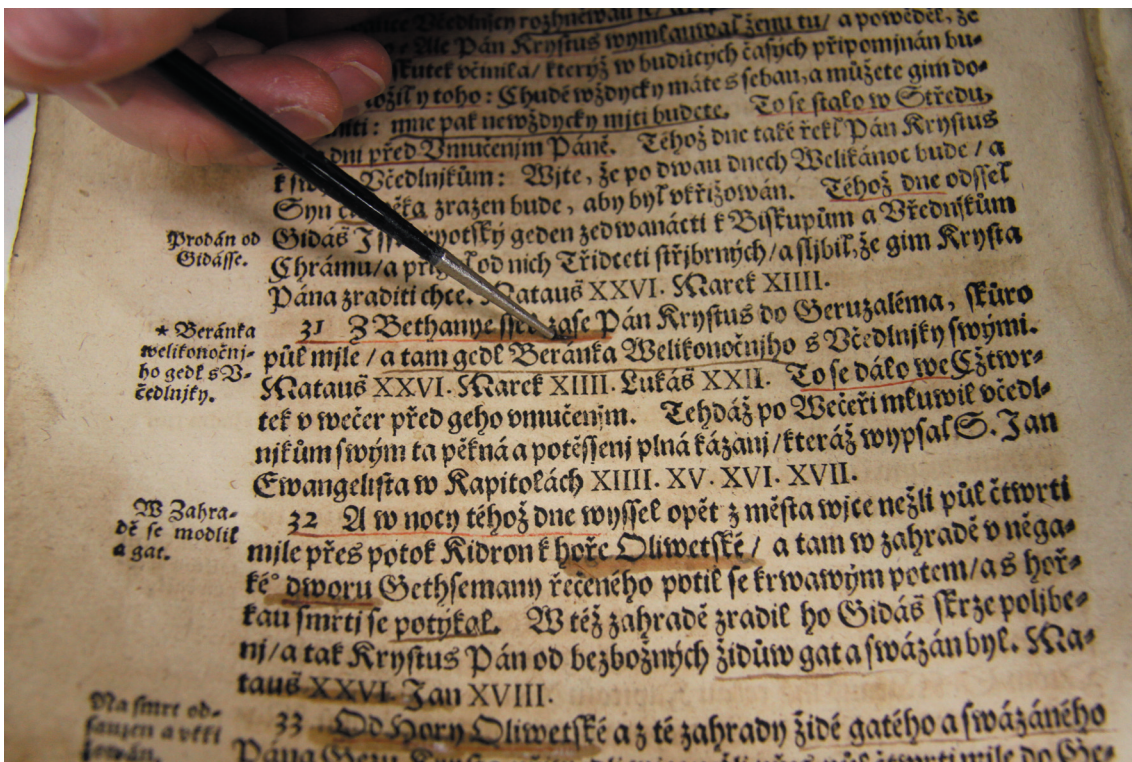 Včedlnjcy rozhněwali ſe/
Ale Pán Kryſtus wymlauwal ženu tu/ a powěděl, že
ſkutek včinila/ kterýž w budaucých čaſých připomjnán bu-
y toho: Chudé wždycky máte s ſebau, a můžete gim do-
: mne pak newždycky mjti budete. To ſe ſtalo w Středu,
dni před Vmučenjm Páně. Téhož dne také řekl Pán Kryſtus
Včedlnjkům: Wjte, že po dwau dnech Welikánoc bude / a
Syn zrazen bude, aby byl vkřižowán. Téhož dne odſſel
Gidáš geden zedwanácti k Biſkupům a Vřednjkům
Chrámu/ a od nich Třidceti ſtřjbrných/ a ſljbil, že gim Kryſta
Pána zraditi chce. Mataus XXVI. Marek XIIII.
Prodán od
Gidáſſe.
31 Z Bethanye ſſel zaſe Pán Kryſtus do Geruzaléma, ſkůro
půl mjle / a tam gedl Beránka Welikonočnjho s Včedlnjky ſwými.
Mataus XXVI. Marek XIIII. Lukáš XXII. To ſe dálo we Cžtwr-
tek v wečer před geho vmučenjm. Tehdáž po Wečeři mluwil včedl-
njkům ſwým ta pěkná a potěſſenj plná kázanj/ kteráž wypſal S. Jan
Ewangeliſta w Kapitolách XIIII. XV. XVI. XVII.
* Beránka
welikonočnj-
ho gedl s V-
čedlnjky.
32 A w nocy téhož dne wyſſel opět z měſta wjce nežli půl čtwrti
mjle přes potok Kidron k hoře Oliwetſké / a tam w zahradě v něga-
ké° dworu Gethſemany řečeného potil ſe krwawým potem/ a s hoř-
kau ſmrti ſe potýkal. W též zahradě zradil ho Gidáš ſkrze poljbe-
nj/ a tak Kryſtus Pán od bezbožných židůw gat a ſwázán byl. Ma-
taus XXVI. Jan XVIII.
W Zahra-
dě ſe modlil
a gat.
33 Od Hory Oliwetſké a z té zahrady židé gatého a ſwázáného
Pána
Na ſmrt od-
ſauzen a vkři
žowán.